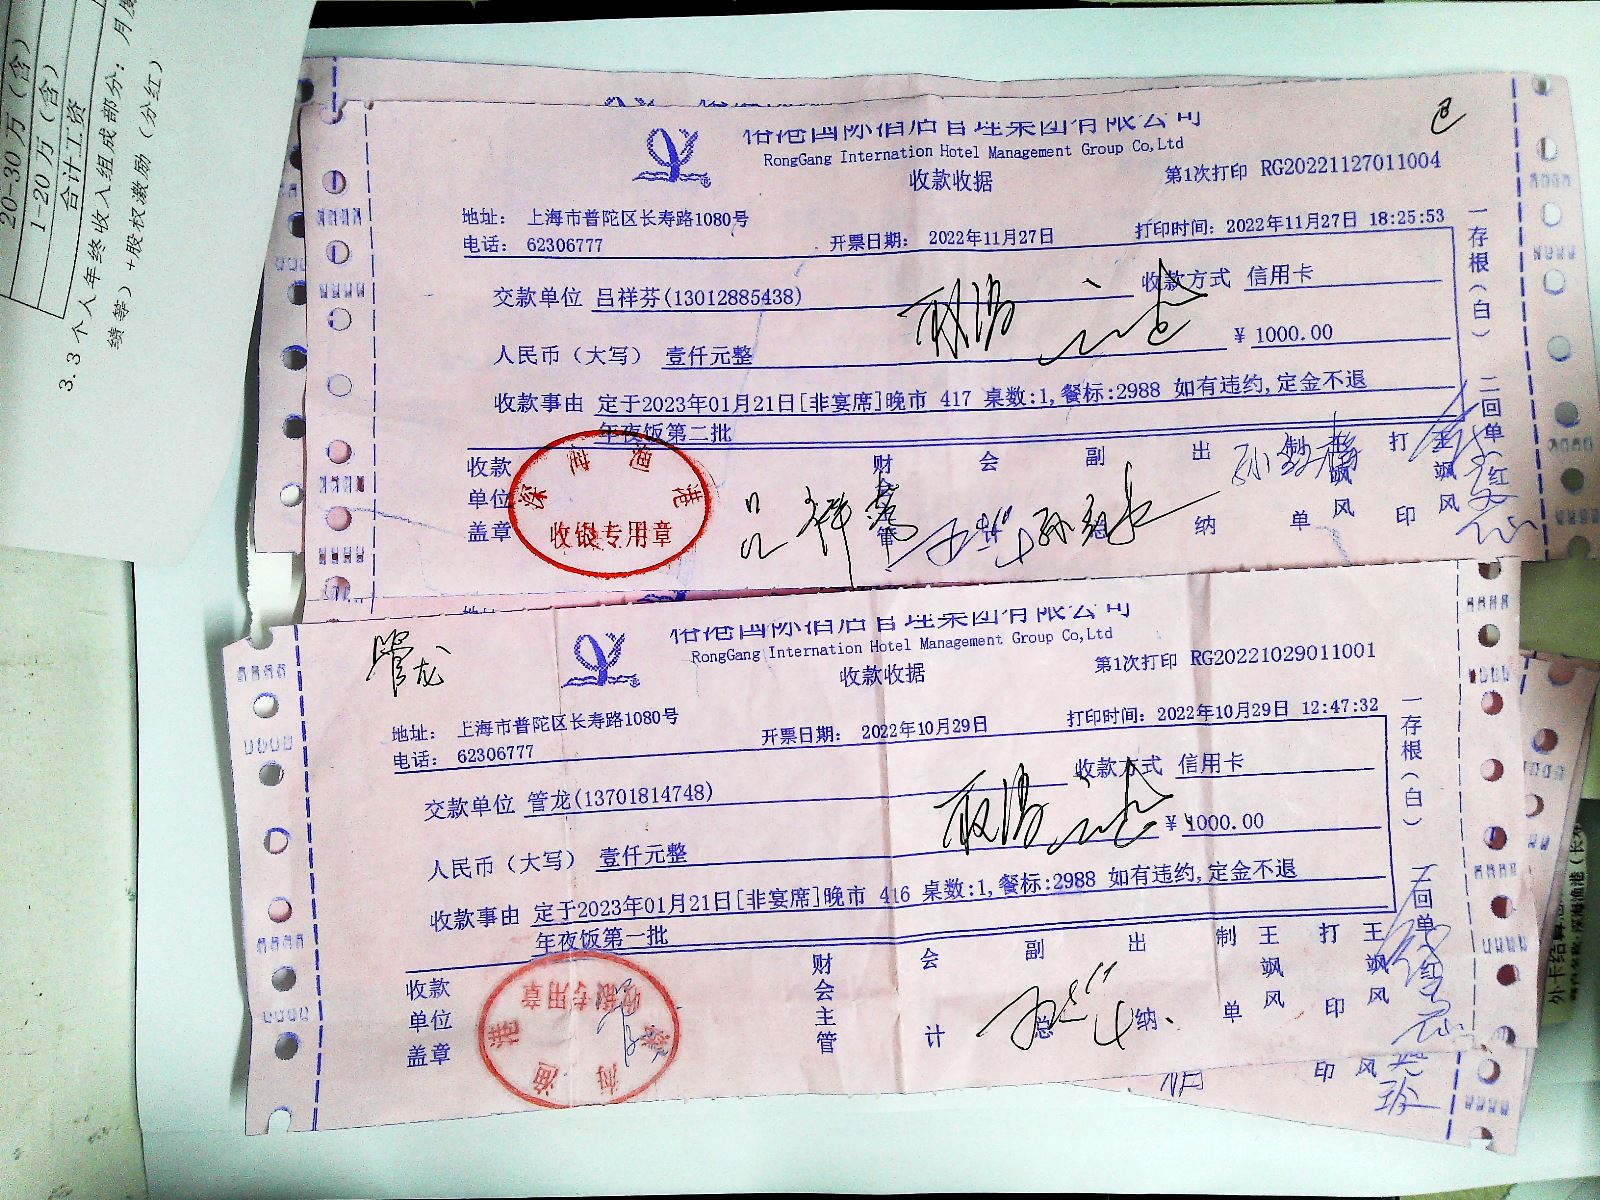 20-30万（含）
1-20万（含）
合计工资
3.3 个人年终收入组成部分：月度
绩等）+股权激励（分红）
俗港国际酒店管理集团有限公司
RongGang Internation Hotel Management Group Co,Ltd
收款收据
第1次打印 RG20221127011004
地址： 上海市普陀区长寿路1080号
电话： 62306777
开票日期： 2022年11月27日
打印时间：2022年11月27日 18:25:53
交款单位 吕祥芬(13012885438)
收款方式 信用卡
人民币（大写） 壹仟元整
¥ 1000.00
收款事由 定于2023年01月21日[非宴席]晚市 417 桌数:1,餐标:2988 如有违约,定金不退
年夜饭第二批
收款单位盖章
财会主管
会
副总
出纳
制单
王飒风
打印
王飒风
一存根（白）
二回单（红）
深海渔港
收银专用章
管龙
俗港国际酒店管理集团有限公司
RongGang Internation Hotel Management Group Co,Ltd
收款收据
第1次打印 RG20221029011001
地址： 上海市普陀区长寿路1080号
电话： 62306777
开票日期： 2022年10月29日
打印时间：2022年10月29日 12:47:32
交款单位 管龙(13701814748)
收款方式 信用卡
人民币（大写） 壹仟元整
¥ 1000.00
收款事由 定于2023年01月21日[非宴席]晚市 416 桌数:1,餐标:2988 如有违约,定金不退
年夜饭第一批
收款单位盖章
财会主管
会计
副总
出纳
制单
王飒风
打印
王飒风
一存根（白）
二回单（红
深海渔港
收银专用章
印 风